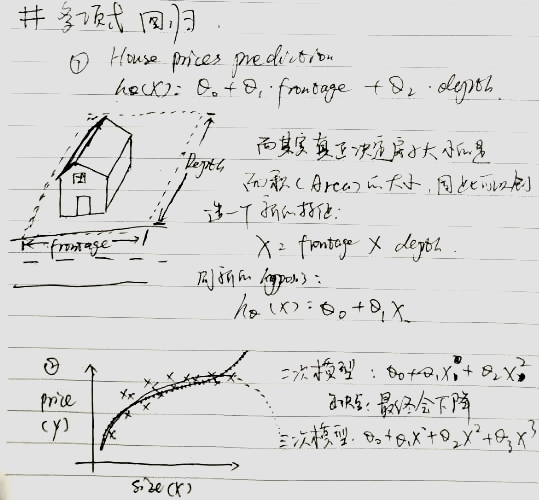 # 多项式回归.
① House prices prediction
hθ(x) = θ₀ + θ₁·frontage + θ₂·depth.
Depth
frontage
而其实真正决定房子大小的是
面积(Area)的大小,因此可以创
造一个新的特征:
X = frontage × depth.
则新的 hypos):
hθ(x) = θ₀ + θ₁X
②
price
(y)
size(x)
二次模型: θ₀+θ₁x+θ₂x²
缺点: 最终会下降
三次模型. θ₀+θ₁x+θ₂x²+θ₃x³